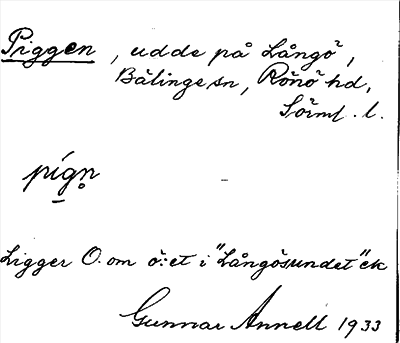 Piggen, udde på Långö,
Bälinge sn, Rönö hd,
Sörml. l.
pígn̥
Ligger O. om ö:et i "Långösundet" ek
Gunnar Annell 1933